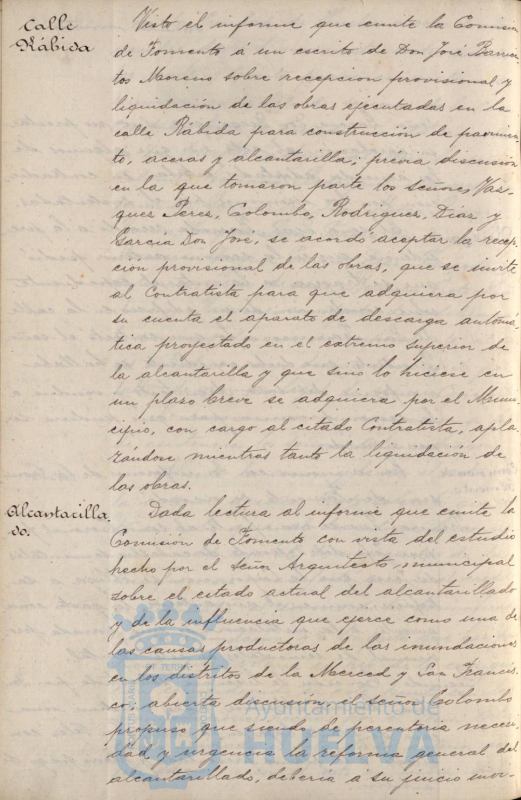 Calle
Rábida
Visto el informe que emite la Comision
de Fomento á un escrito de Don José Barrien-
tos Moreno sobre recepcion provisional y
liquidación de las obras ejecutadas en la
calle Rábida para construcción de pavimien-
to, aceras y alcantarilla; prévia discusion
en la que tomaron parte los señores Vaz-
ques Peres, Colombo, Rodrigues, Díaz y
García Don José, se acordó aceptar la recep-
ción provisional de las obras, que se invite
al Contratista para que adquiera por
su cuenta el aparato de descarga automá-
tica proyectado en el extremo superior de
la alcantarilla y que sino lo hiciese en
un plazo breve se adquiera por el Muni-
cipio, con cargo al citado Contratista, apla-
zándose mientras tanto la liquidación de
las obras.
Alcantarilla-
do.
Dada lectura al informe que emite la
Comisión de Fomento con vista del estudio
hecho por el señor Arquitecto municipal
sobre el estado actual del alcantarillado
y de la influencia que ejerce como una de
las causas productoras de las inundaciones
en los distritos de la Merced y San Francis-
co, abierta discusión el señor Colombo
propuso que siendo de perentoria necesi-
dad y urgencia la reforma general del
alcantarillado, debería a su juicio invi-
Ayuntamiento de
HUELVA